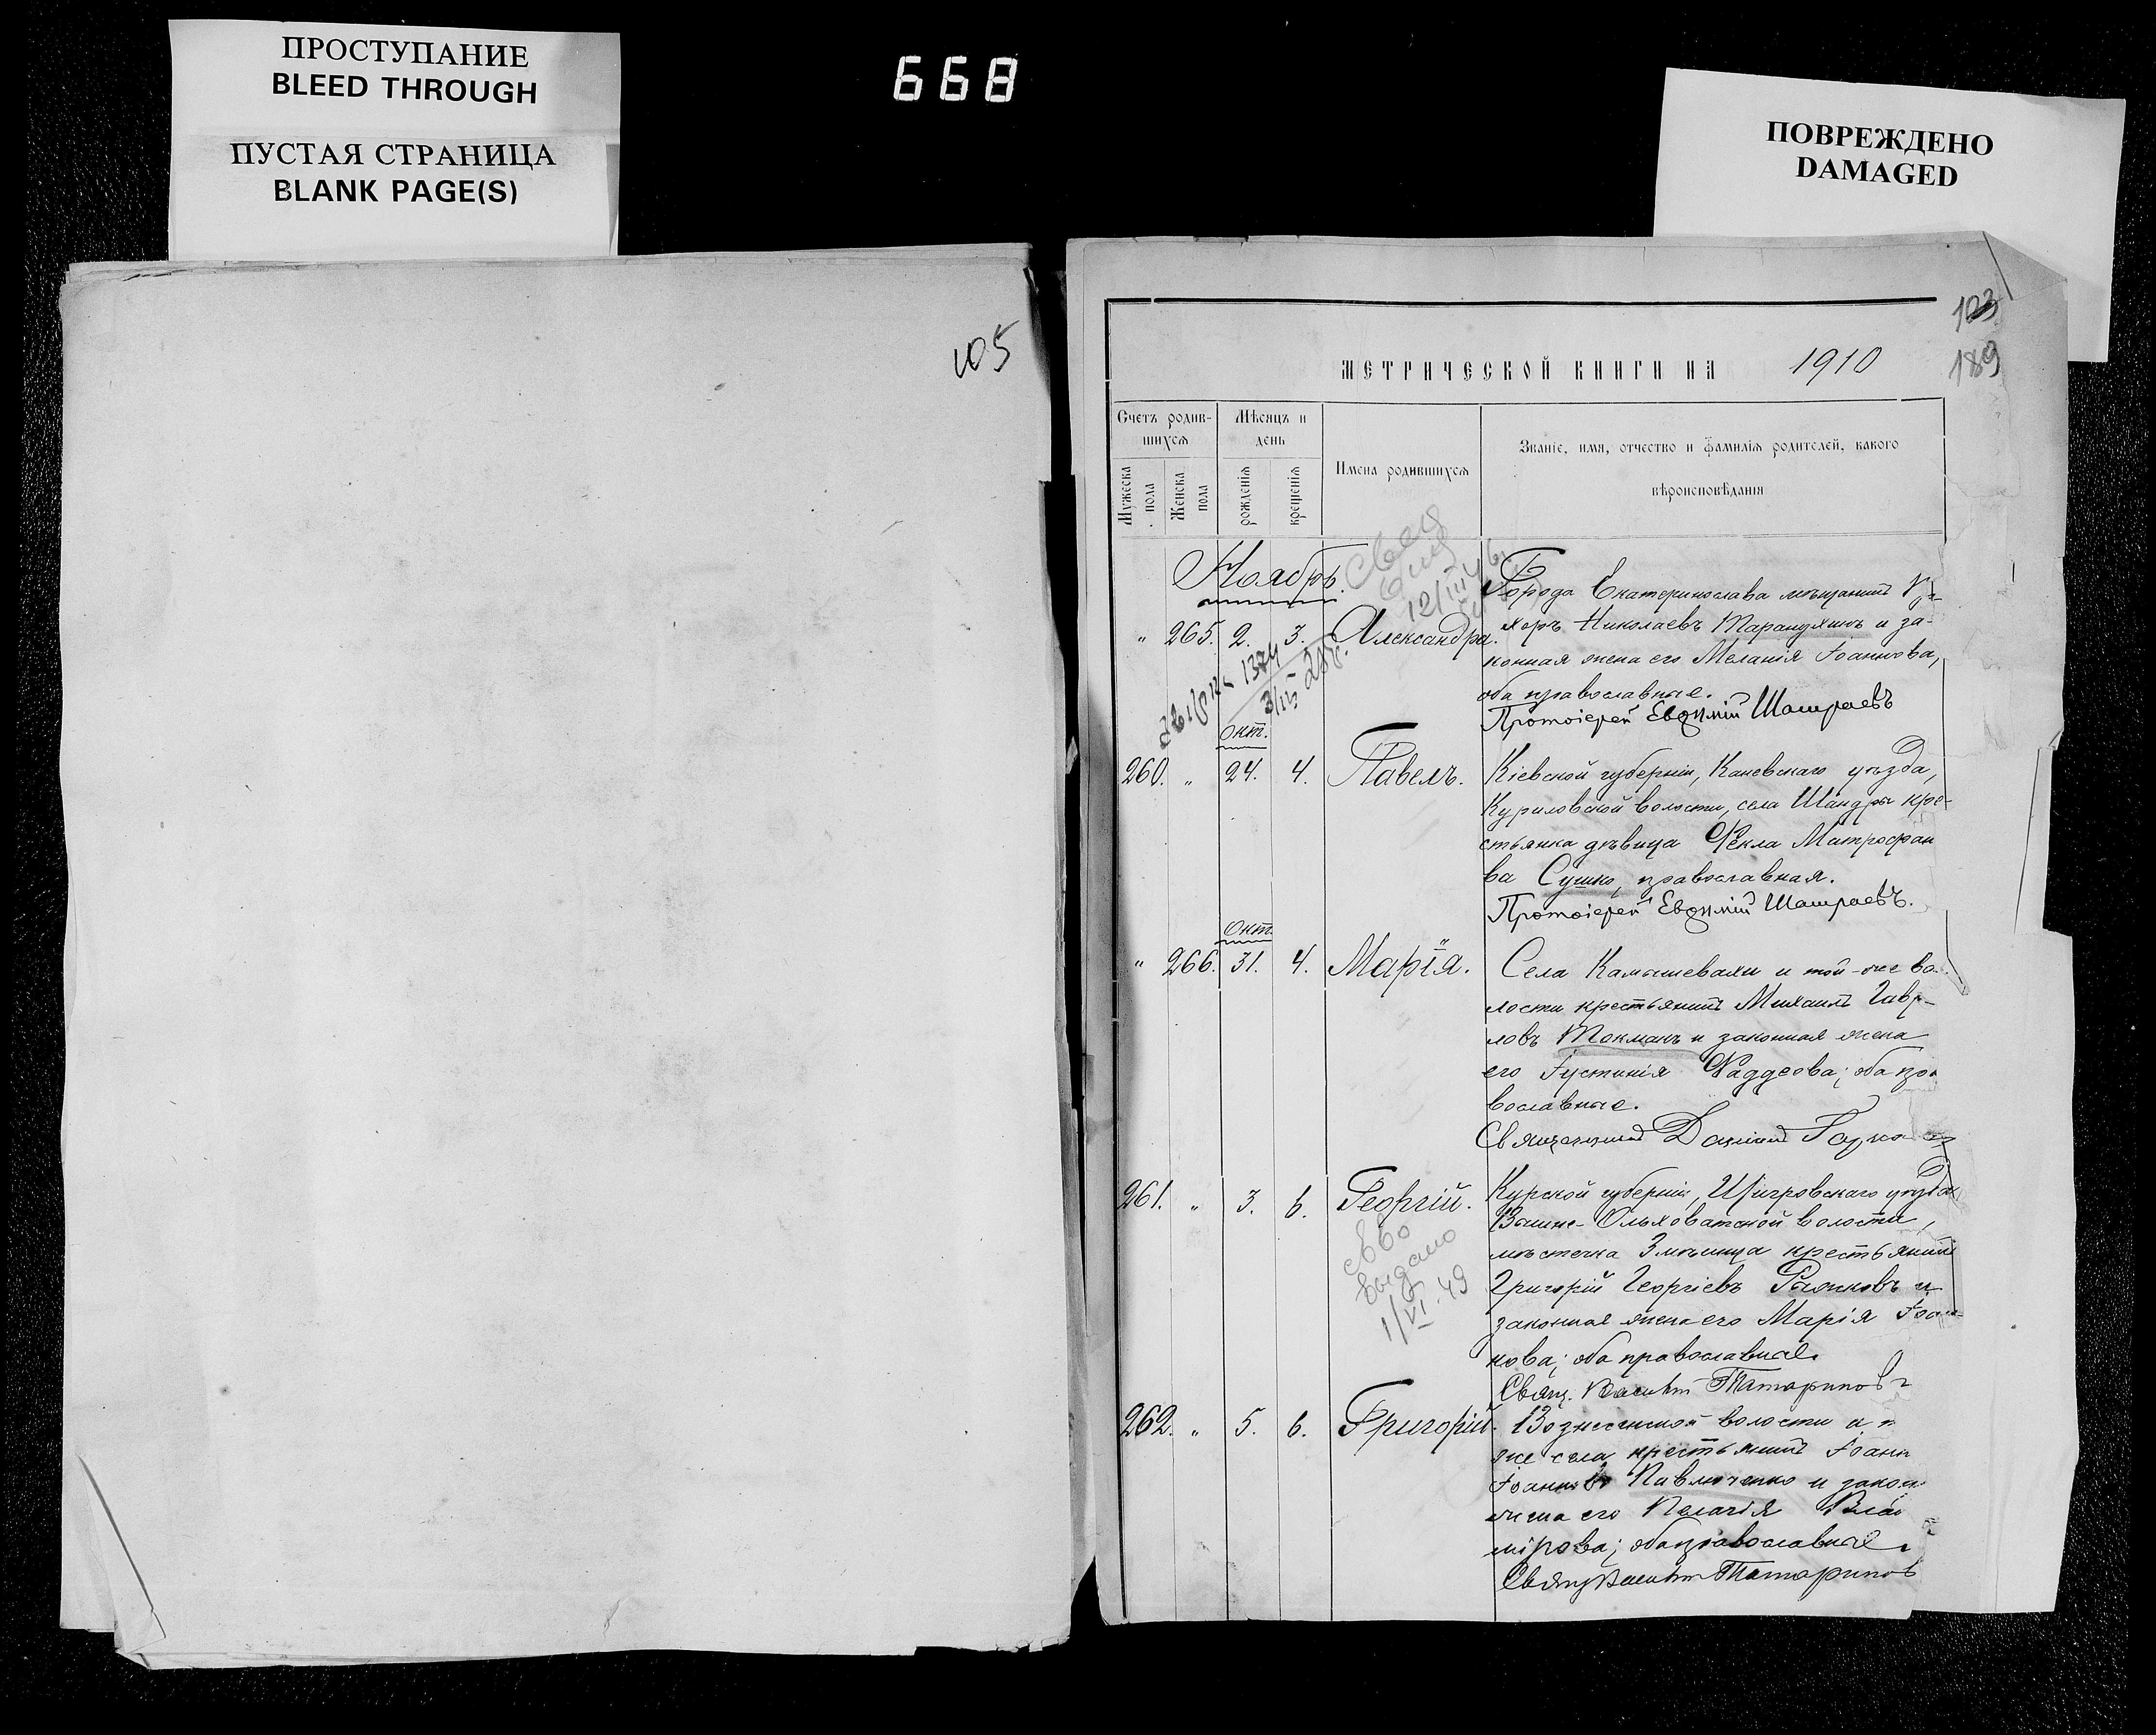 ПРОСТУПАНИЕ
BLEED THROUGH
ПУСТАЯ СТРАНИЦА
BLANK PAGE(S)
668
ПОВРЕЖДЕНО
DAMAGED
105
103
189
МЕТРИЧЕСКОЙ КНИГИ НА 1910
Счетъ родив-
шихся
Мужеска
пола
Женска
пола
Мѣсяцъ и
день
рожденія
крещенія
Имена родившихся
Званіе, имя, отчество и фамилія родителей, какого
вѣроисповѣданія
Ноябрь.
12/III
" 265. 2. 3. Александра.
Города Екатеринослава мѣщанинъ
Николаевъ Тарандхинъ и за-
конная жена его Меланія Іоаннова,
оба православные.
Протоіерей Евѳимій Шашраевъ
Окт.
260. " 24. 4. Павелъ.
Кіевской губерніи, Каневскаго уѣзда,
Куриловской волости, села Шандры кре-
стьянка дѣвица Ѳекла Митрофан
ва Сушко, православная.
Протоіерей Евѳимій Шашраевъ.
Окт.
" 266. 31. 4. Марія.
Села Камышевахи и той-же во-
лости крестьянинъ Михаилъ Гавр-
ловъ Токмакъ и законная жена
его Іустинія Ѳаддеова; оба пра
вославные.
Священникъ Даніилъ
261. " 3. 6. Георгій.
выдано
1/VI.49
Курской губерніи, Щигровскаго уѣзда
Вышне-Ольховатской волости,
мѣстечка Змѣинца крестьянинъ
Григорій Георгіевъ Рыжковъ и
законная жена его Марія Іоан-
нова; оба православные.
Свящ. Татариновъ
262. " 5. 6. Григорій.
Вознесенской волости и т
же села крестьянинъ Іоанн
Іоанновъ Павлюченко и закон
жена его Пелагія Влад
мірова; оба православные.
Свящ Татаринов